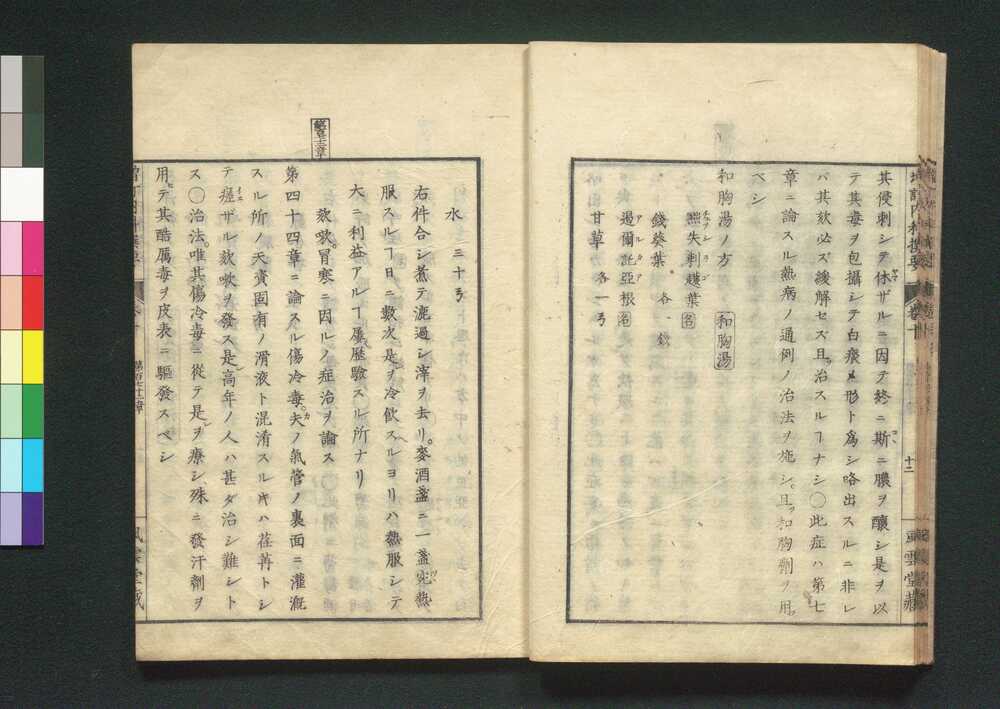 其侵刺シテ休ザルニ因テ終ニ斯ニ膿ヲ釀シ是ヲ以
テ其毒ヲ包攝シテ白痰ノ形ト爲シ咯出スルニ非レ
バ其欬必ズ緩解セズ且治スルヿナシ〇此症ハ第七
章ニ論スル熱病ノ通例ノ治法ヲ施シ且和胸劑ヲ用
ベシ
和胸湯ノ方 和胸湯
葉 名
錢葵葉 各一錢
過爾託亞根 名
アルタア
甘草 各一弓
十二
風雲堂藏
水 三十弓
右件合シ煮テ漉過シ滓ヲ去リ麥酒盞ニ一盞宛熱
服スルヿ日ニ數次是ヲ冷飲スルヨリハ熱服シテ
大ニ利益アルヿ屢歴驗スル所ナリ
欬嗽冒寒ニ因ルノ症治ヲ論ス
第四十四章ニ論スル傷冷毒夫ノ氣管ノ裏面ニ灌漑
スル所ノ天賚固有ノ滑液ト混淆スル片ハ荏苒トシ
テ瘥ザル欬嗽ヲ發ス是高年ノ人ハ甚ダ治シ難シト
ス〇治法唯其傷冷毒ニ從テ是ヲ療シ殊ニ發汗劑ヲ
用テ其酷厲毒ヲ皮表ニ驅發スベシ